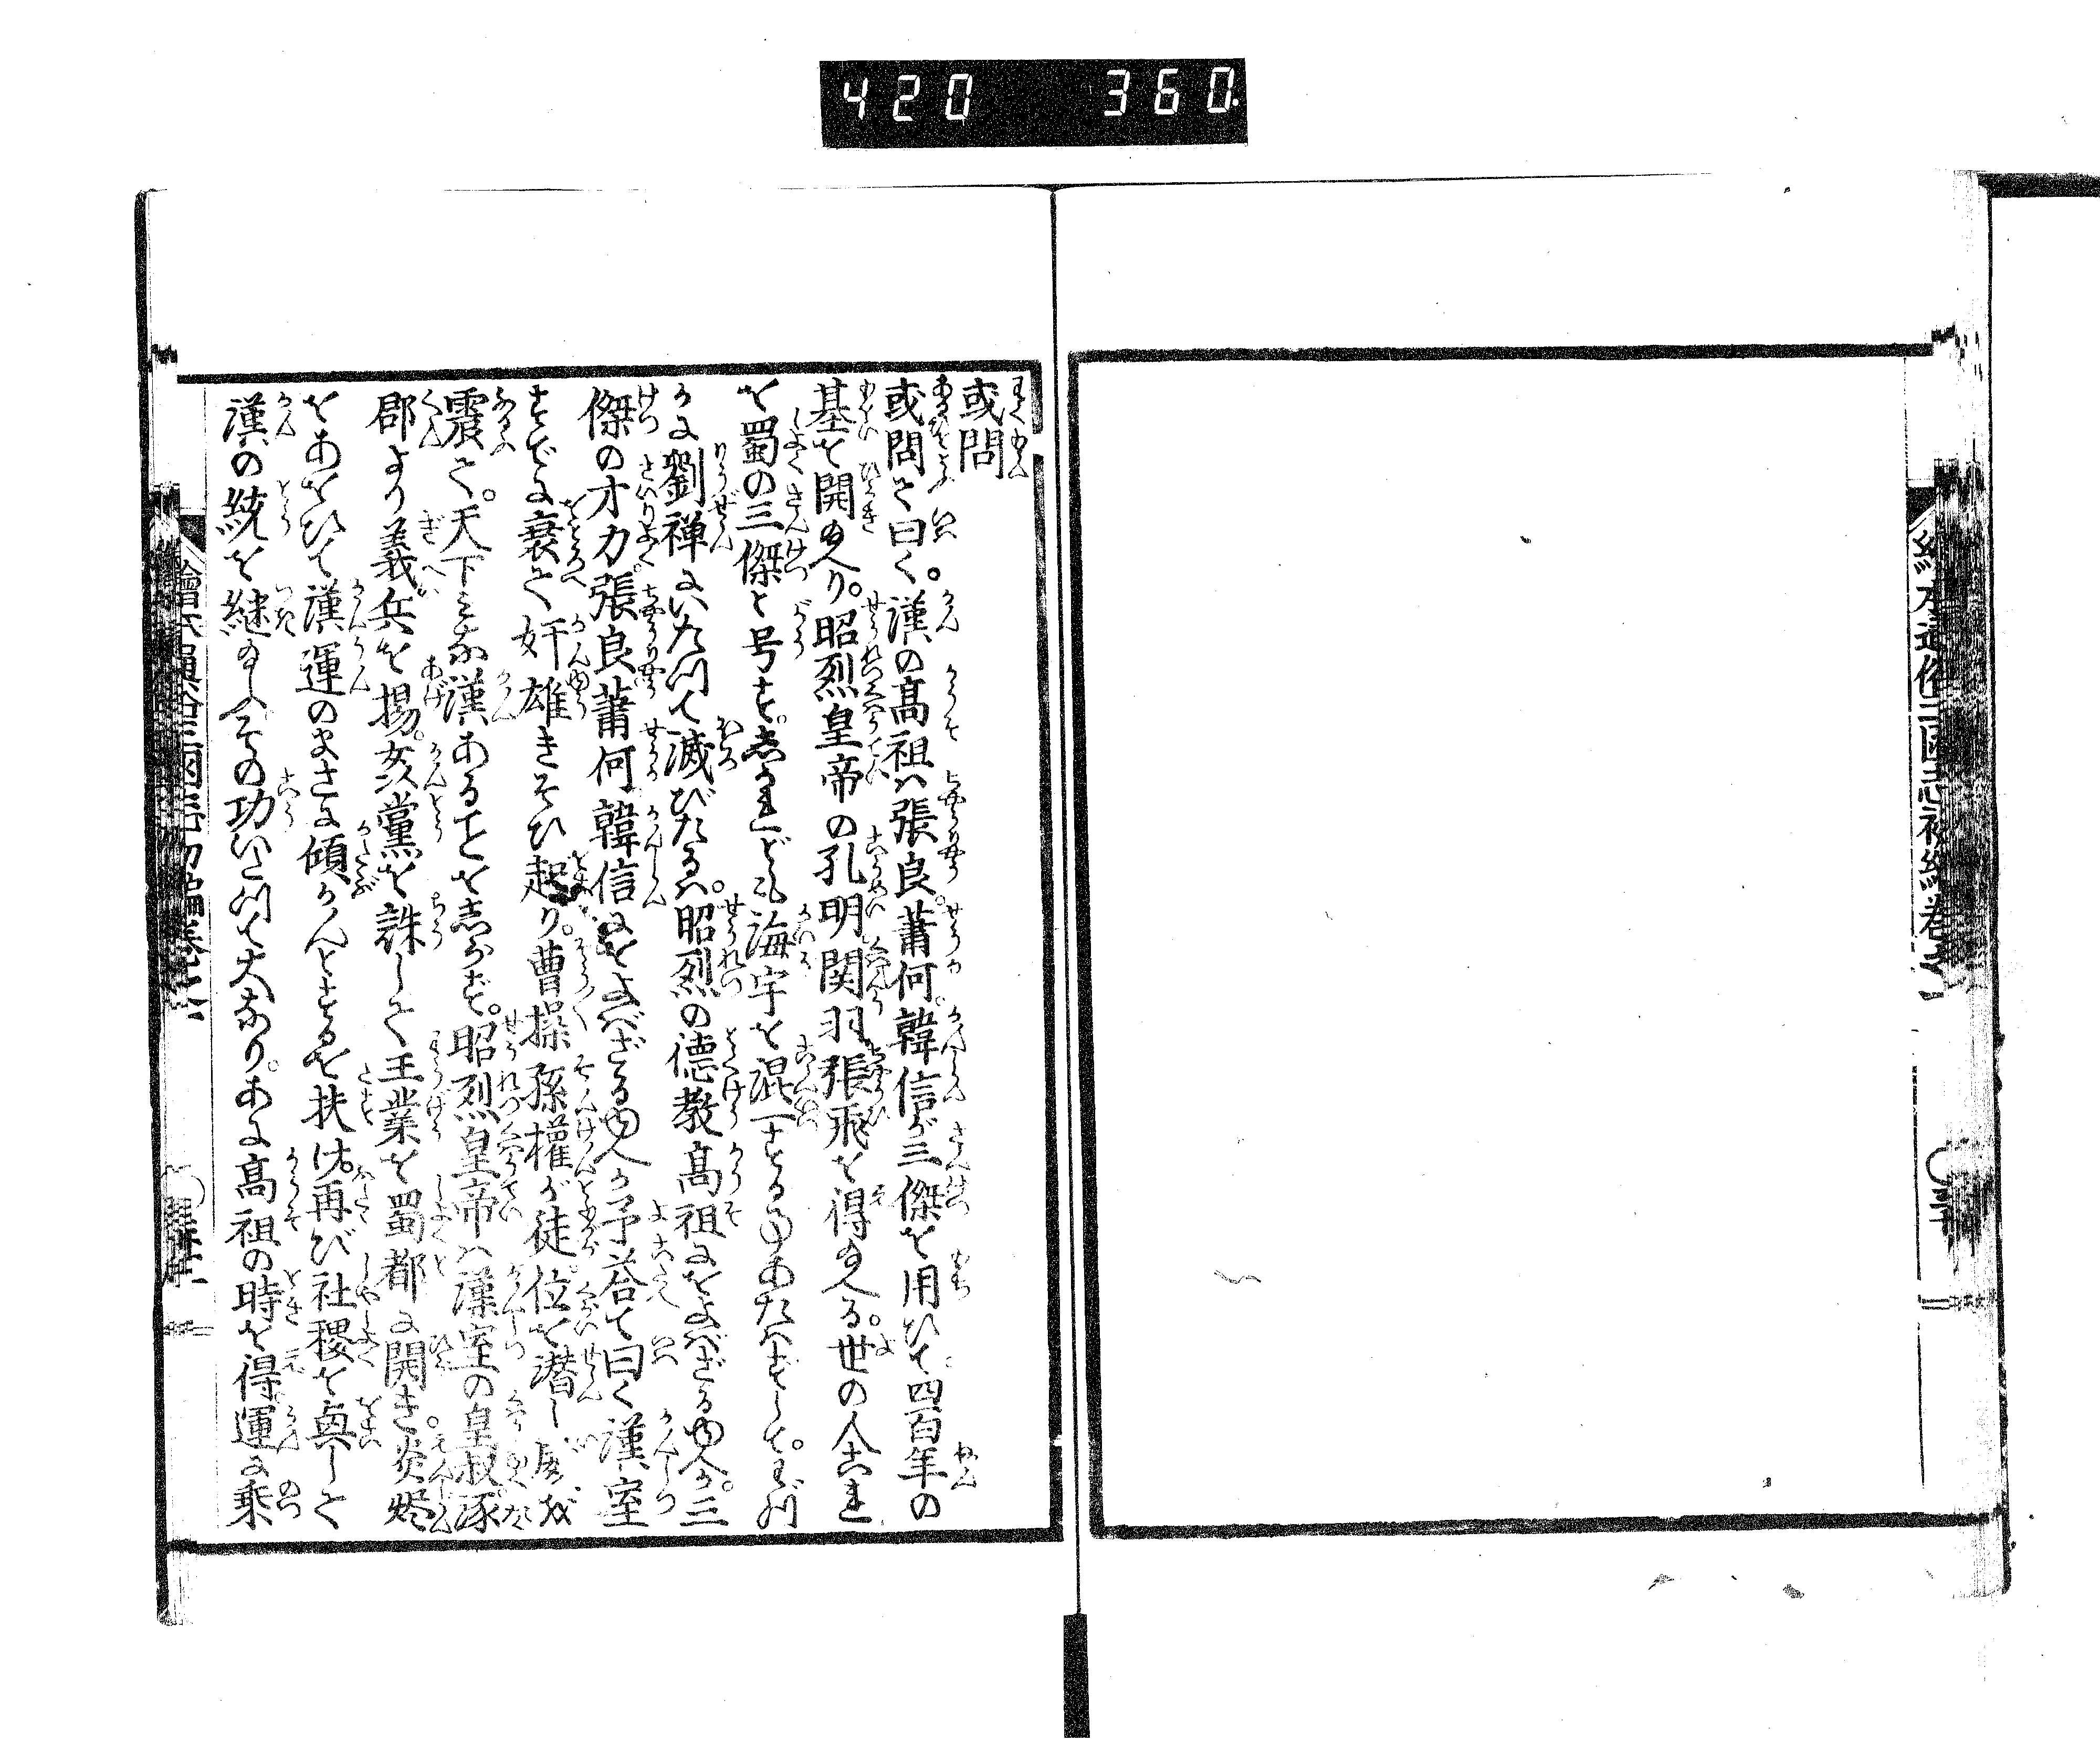 420 360.
或問
或問て曰く。漢の高祖ハ張良。蕭何。韓信が三傑を用ひて四百年の
基を開給へり。昭烈皇帝の孔明関羽張飛を得給へる。世の人これ
を蜀の三傑と号す。しかれども海宇を混一することあたはずして。わづ
かに劉禅にいたりて滅びたるハ。昭烈の德教高祖におよばざるゆへか。三
傑の才力張良蕭何韓信におよばざるゆへか予答て曰く漢室
すでに衰て奸雄きそひ起り。曹操孫權が徒。位を潜し
震て。天下みな漢あることをしらず。昭烈皇帝ハ漢室の皇叔。涿
郡より義兵を揚。姦黨を誅して王業を蜀都に開き。炎燼
をあをひで漢運のまさに傾かんとするを扶け。再び社稷を奠して
漢の統を継給へば。その功いたりて大なり。あに高祖の時を得運に乗